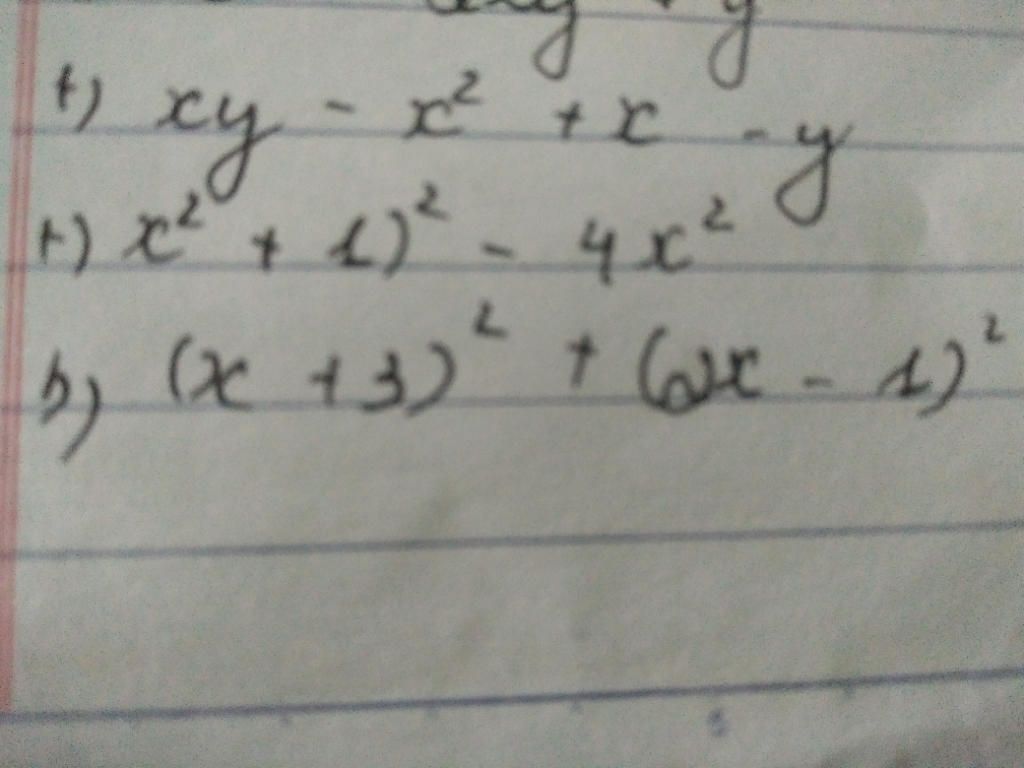 t) xy - x² + x - y
t) x² + 1)² - 4x²
h) (x + 3)² + (2x - 1)²